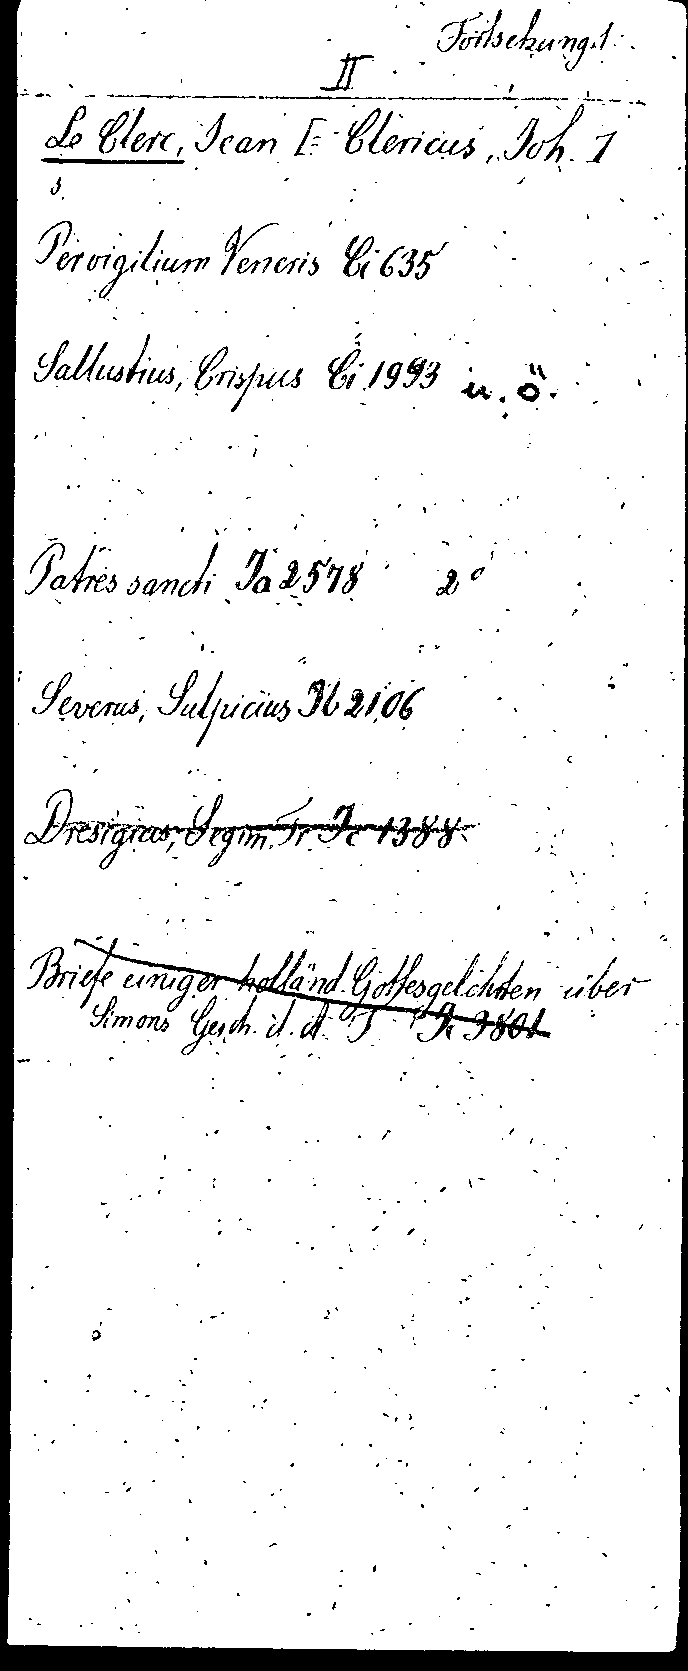 Fortsetzung 1.
II
Le Clerc, Jean [= Clericus, Joh.]
s.
Pervigilium Veneris Ci 635
Sallustius, Crispus Ci 1993 u. ö.
Patres sancti Ia 2578 2°
Severus, Sulpicius Ib 2106
Dresigius, Segm. Fr. Ic 1388
Briefe einiger holländ. Gottesgelehrten über
Simons Gesch. d. A. T. Ic 3801